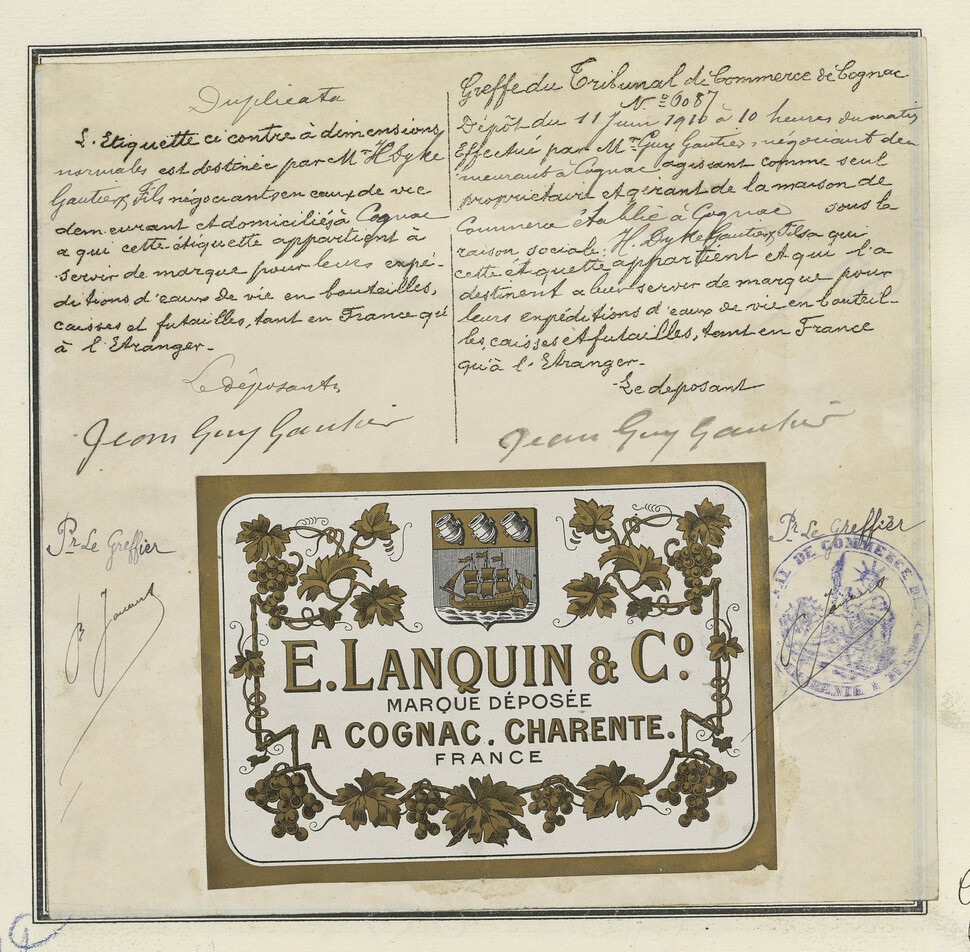 Duplicata
L'Etiquette ci contre à dimensions
normales est destinée par Mr H Dyke
Gautier Fils négociants en eaux de vie
demeurant et domiciliés à Cognac
a qui cette étiquette appartient à
servir de marque pour leurs expé-
ditions d'eaux de vie en bouteilles,
caisses et futailles, tant en France qu'
à l'Etranger-
Le déposant
Jean Guy Gautier
Greffe du Tribunal de Commerce de Cognac
No 6087
Dépôt du 11 Juin 1910 à 10 heures du matin
Effectué par Mr Guy Gautier, négociant de-
meurant à Cognac agissant comme seul
propriétaire et gérant de la maison de
Commerce établie à Cognac sous la
raison sociale. H. Dyke Gautier Fils a qui
cette étiquette appartient et qui l'a
destinent a leur servir de marque pour
leurs expéditions d'eaux de vie en bouteil-
les, caisses et futailles, tant en France
qu'à l'Etranger-
Le deposant
Jean Guy Gautier
Pr Le Greffier
Pr Le Greffier
E. LANQUIN & Co.
MARQUE DÉPOSÉE
A COGNAC. CHARENTE.
FRANCE
DE COMMERCE DE